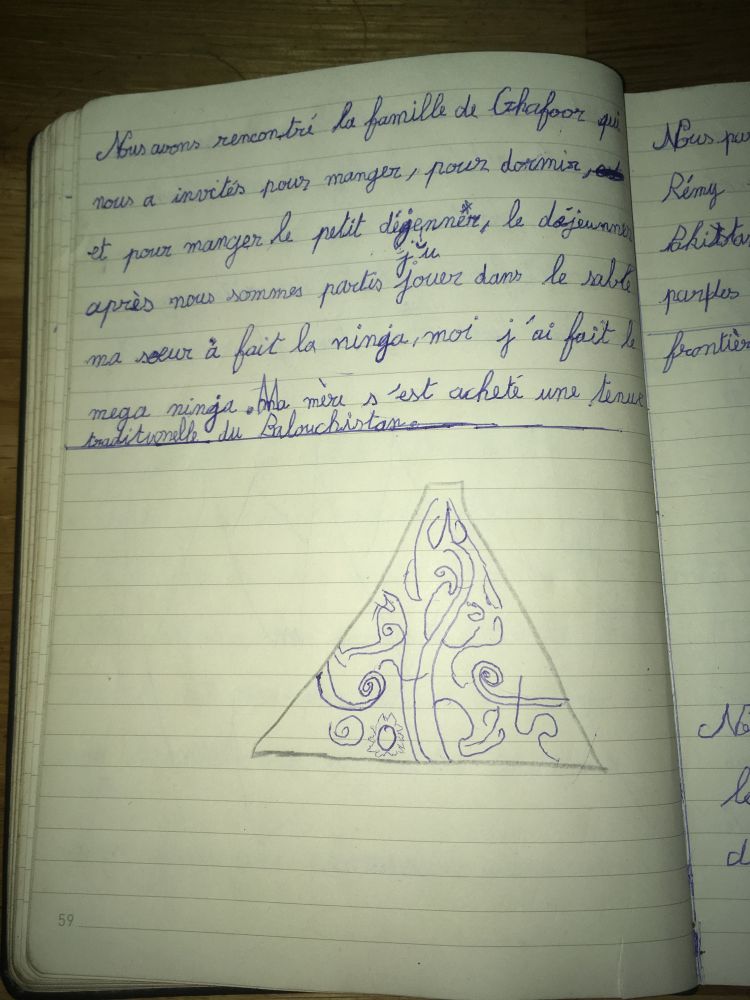 Nous avons rencontré la famille de Ghafoor qui
nous a invités pour manger, pour dormir,
et pour manger le petit déjennér, le déjeunner
j u
après nous sommes partis jouer dans le sable
ma soeur à fait la ninja, moi j'ai fait le
mega ninja. Ma mère s'est acheté une tenue
traditionelle du Balouchistan.
59
Nous par
Rémy
parles
frontièr
No
le
d